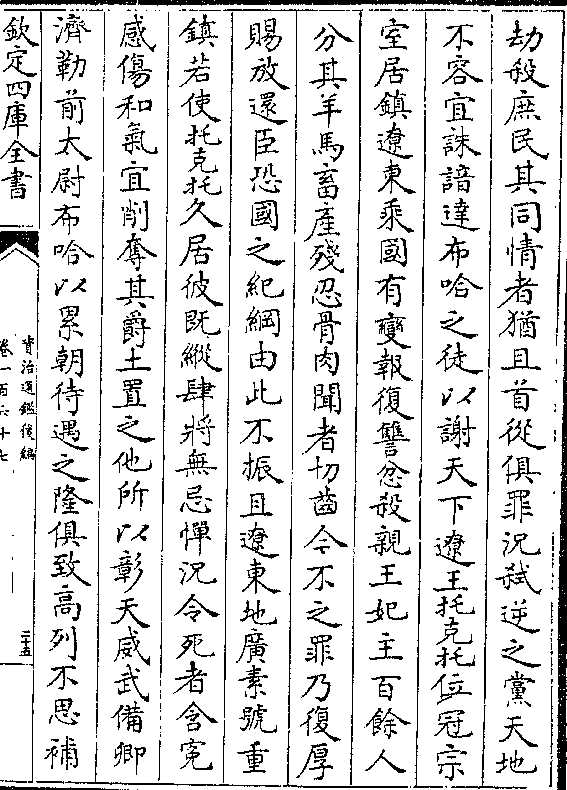 劫殺庶民其同情者猶且首從俱罪況弑逆之黨天地
不容宜誅諳達布哈之徒以謝天下遼王托克托位冠宗
室居鎮遼東乘國有變報復讐忿殺親王妃主百餘人
分其羊馬畜産殘忍骨肉聞者切齒今不之罪乃復厚
賜放還臣恐國之紀綱由此不振且遼東地廣素號重
鎮若使托克托久居彼既縱肆將無忌憚況令死者含寃
感傷和氣宜削奪其爵土置之他所以彰天威武備卿
濟勒前太尉布哈以累朝待遇之隆俱致高列不思補
欽定四庫全書
資治通鑑後編
卷一百六十七
三十五